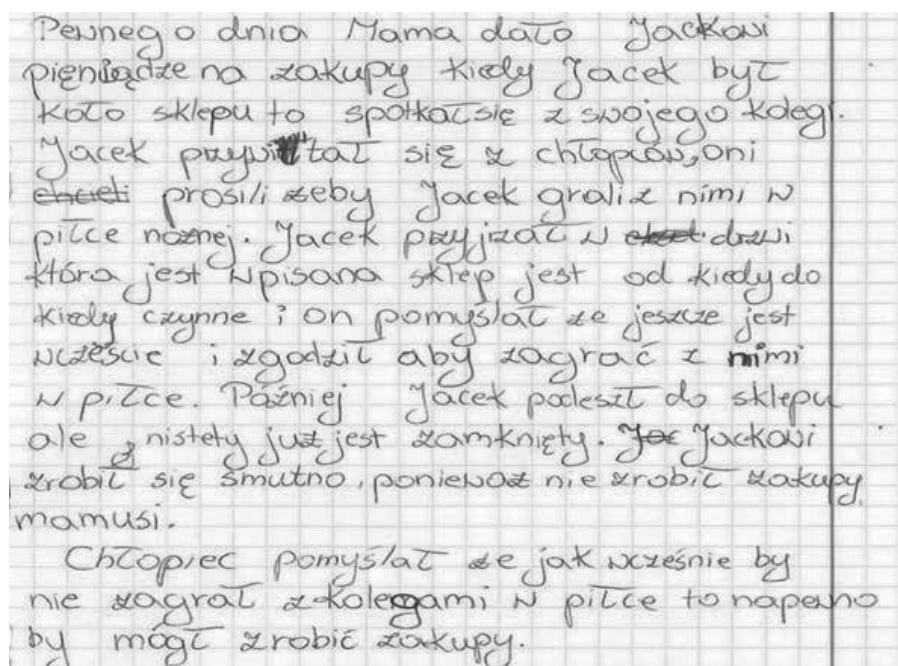 Pewnego dnia Mama dało Jackowi
pieniądze na zakupy kiedy Jacek był
koło sklepu to spotkał się z swojego kolegi.
Jacek przywitał się z chłopców, oni
chcieli prosili żeby Jacek grali z nimi w
piłce nożnej. Jacek przyjrzał w drzwi
która jest wpisana sklep jest od kiedy do
kiedy czynne i on pomyślał że jeszcze jest
wczeście i zgodził aby zagrać z nimi
w piłce. Później Jacek podeszł do sklepu
ale nistety już jest zamknięty. Jackowi
zrobił się smutno, ponieważ nie zrobił zakupy
mamusi.
Chłopiec pomyślał że jak wcześnie by
nie zagrał z kolegami w piłce to napewno
by mógł zrobić zakupy.